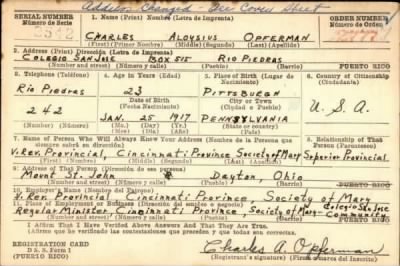 Address Changed - See Cover Sheet
SERIAL NUMBER
Número de Serie
1. Name (Print) Nombre (Letra de Imprenta)
ORDER NUMBER
CHARLES ALOYSIUS OPFERMAN
(First) (Primer Nombre) (Middle) (Segundo) (Last) (Apellido)
3. Address (Print) Dirección (Letra de Imprenta)
COLEGIO SAN JOSE BOX 515 RIO PIEDRAS PUERTO RICO
(Number and street) (Número y calle) (Pueblo) (Barrio) PUERTO RICO
2. Telephone (Teléfono)
4. Age in Years (Edad)
5. Place of Birth (Lugar de Nacimiento)
6. Country of Citizenship (Ciudadanía)
RIO PIEDRAS
23
PITTSBURGH
Date of Birth
(Fecha Nacimiento)
City or Town
(Ciudad o Pueblo)
U.S.A.
242
JAN. 25 1917
PENNSYLVANIA
(Number) (Número)
(Mo.) (Day) (Yr.)
(State or Country)
7. Name of Person Who Will Always Know Your Address (Nombre de la Persona que
Relationship of That Person
V. Rev. Provincial, Cincinnati Province, Society of Mary Superior Provincial
(First) (Middle) (Segundo)
8. Address of That Person (Dirección de esa persona)
Mount St. John Dayton, Ohio
(Number and street) (Número y calle) (Pueblo) (Barrio) (PUERTO RICO)
10. Employer's Name (Nombre del Patrono)
V. Rev. Provincial Cincinnati Province, Society of Mary
11. Place of Employment or Business (Dirección del empleo o negocio)
Regular Minister Cincinnati Province, Society of Mary - Colegio San Jose Community
(Number and street) (Número y calle) (Pueblo) (Barrio) (PUERTO RICO)
I Affirm That I Have Verified Above Answers And That They Are True.
Afirmo que he verificado las contestaciones que preceden y que todas son correctas.
REGISTRATION CARD
D. S. S. Form 1
(PUERTO RICO)
Charles A. Opferman
(Registrant's signature) (Firma)